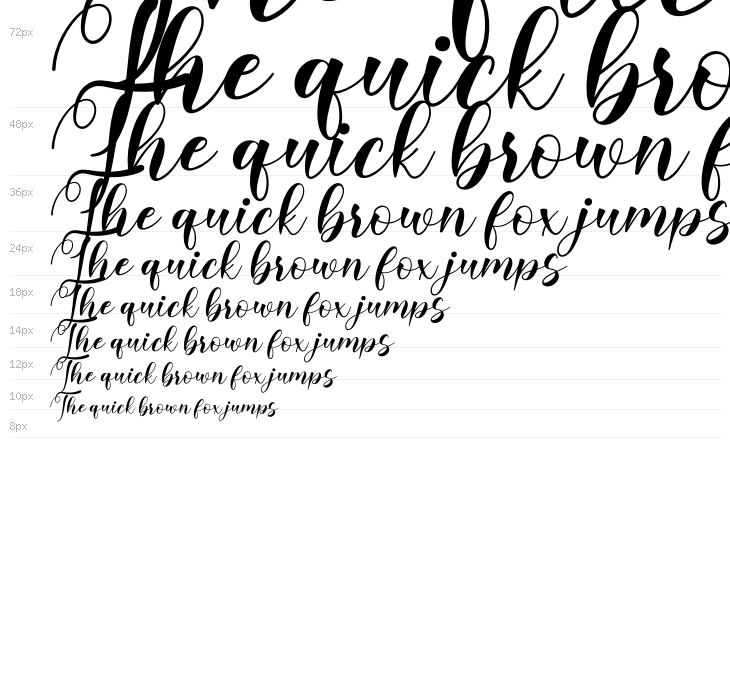 72px
The quick bro
48px
The quick brown f
36px
The quick brown fox jumps
24px
The quick brown fox jumps
18px
The quick brown fox jumps
14px
The quick brown fox jumps
12px
The quick brown fox jumps
10px
The quick brown fox jumps
8px